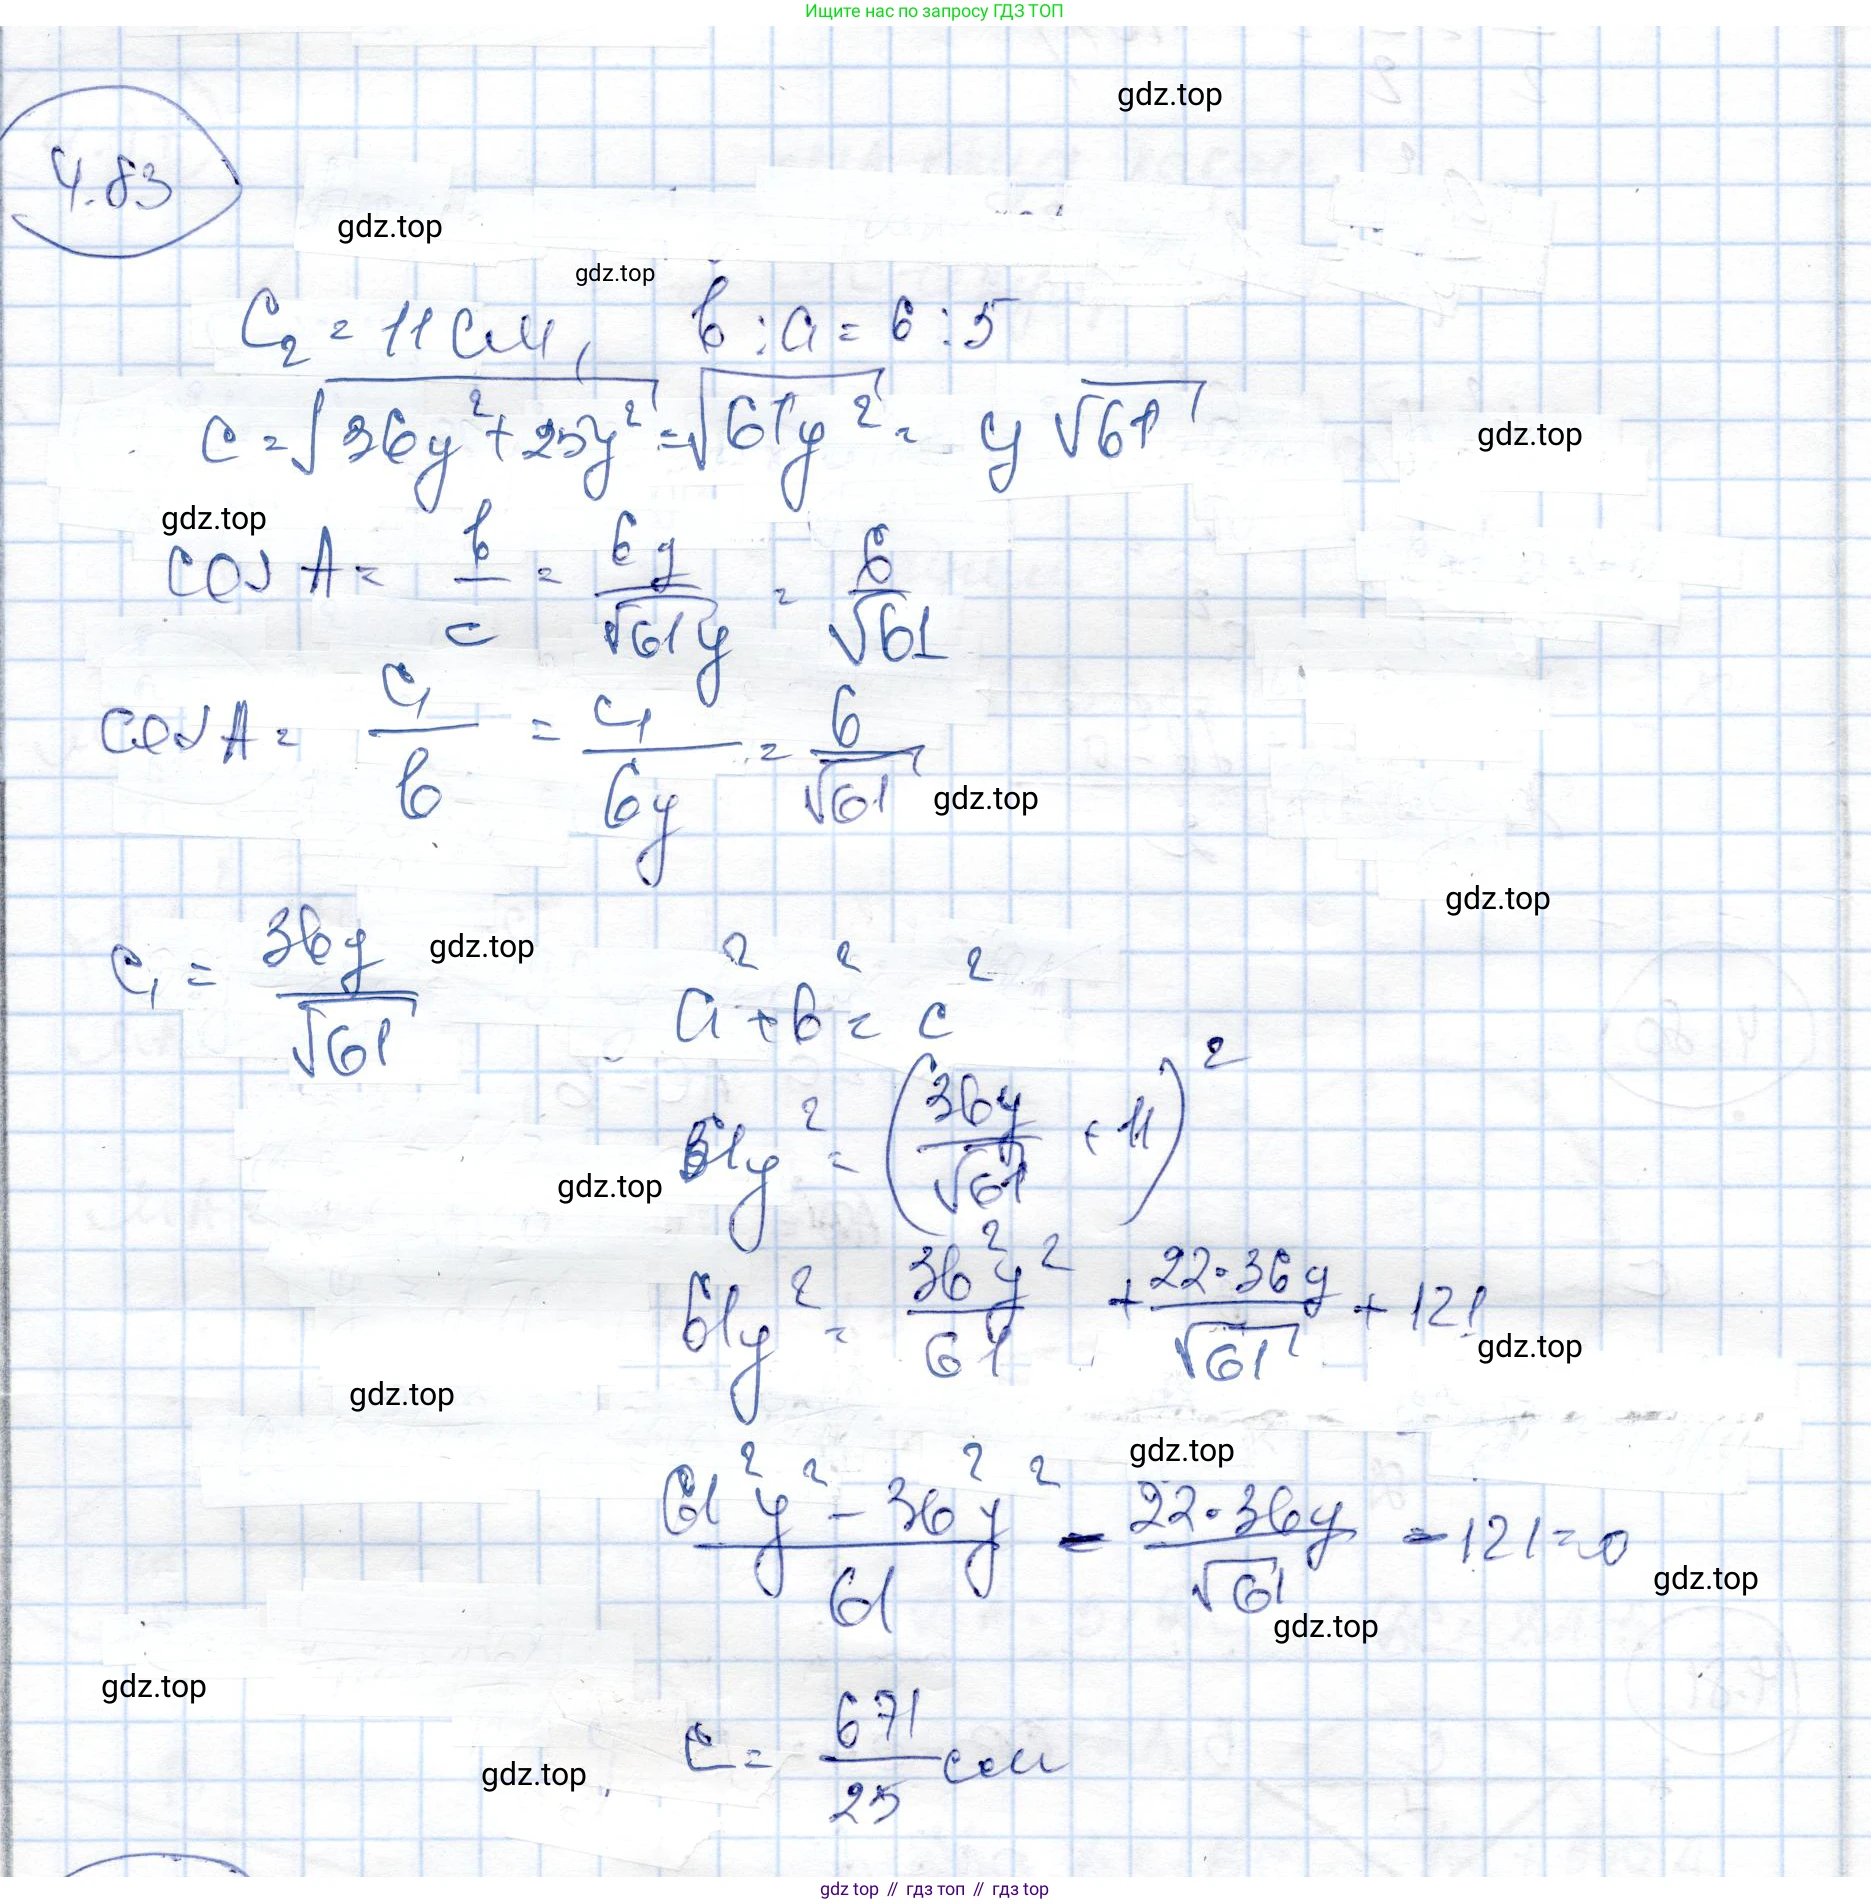 Ищите нас по запросу ГДЗ ТОП
gdz.top
4.83
gdz.top
gdz.top
C₂ = 11 см, b : a = 6 : 5
c = √(36y² + 25y²) = √(61y²) = y√61
gdz.top
gdz.top
cos A = b/c = 6y/(√61 y) = 6/√61
cos A = c₁/b = c₁/6y = 6/√61
gdz.top
gdz.top
c₁ = 36y/√61
gdz.top
a² + b² = c²
61y² = (36y/√61 + 11)²
gdz.top
61y² = 36²y²/61 + 22·36y/√61 + 121
gdz.top
gdz.top
gdz.top
(61²y² − 36²y²)/61 − 22·36y/√61 − 121 = 0
gdz.top
gdz.top
gdz.top
c = 671/25 см
gdz.top
gdz top // гдз топ // гдз top